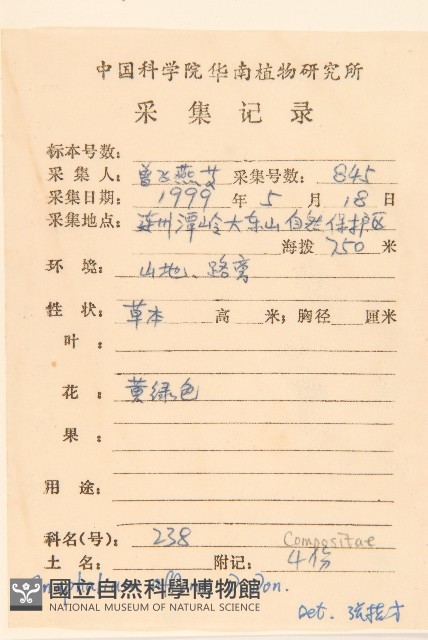 中国科学院华南植物研究所
采集记录
标本号数：
采集人：曾飞燕 采集号数：845
采集日期：1999 年 5 月 18 日
采集地点：连州潭岭大东山自然保护区
海拨 750 米
环境：山地、路旁
性状：草本 高 米；胸径 厘米
叶：
花：黄绿色
果：
用途：
科名(号)：238 Compositae
土名： 附记：4份
Don.
國立自然科學博物館
NATIONAL MUSEUM OF NATURAL SCIENCE
Det. 张桂才